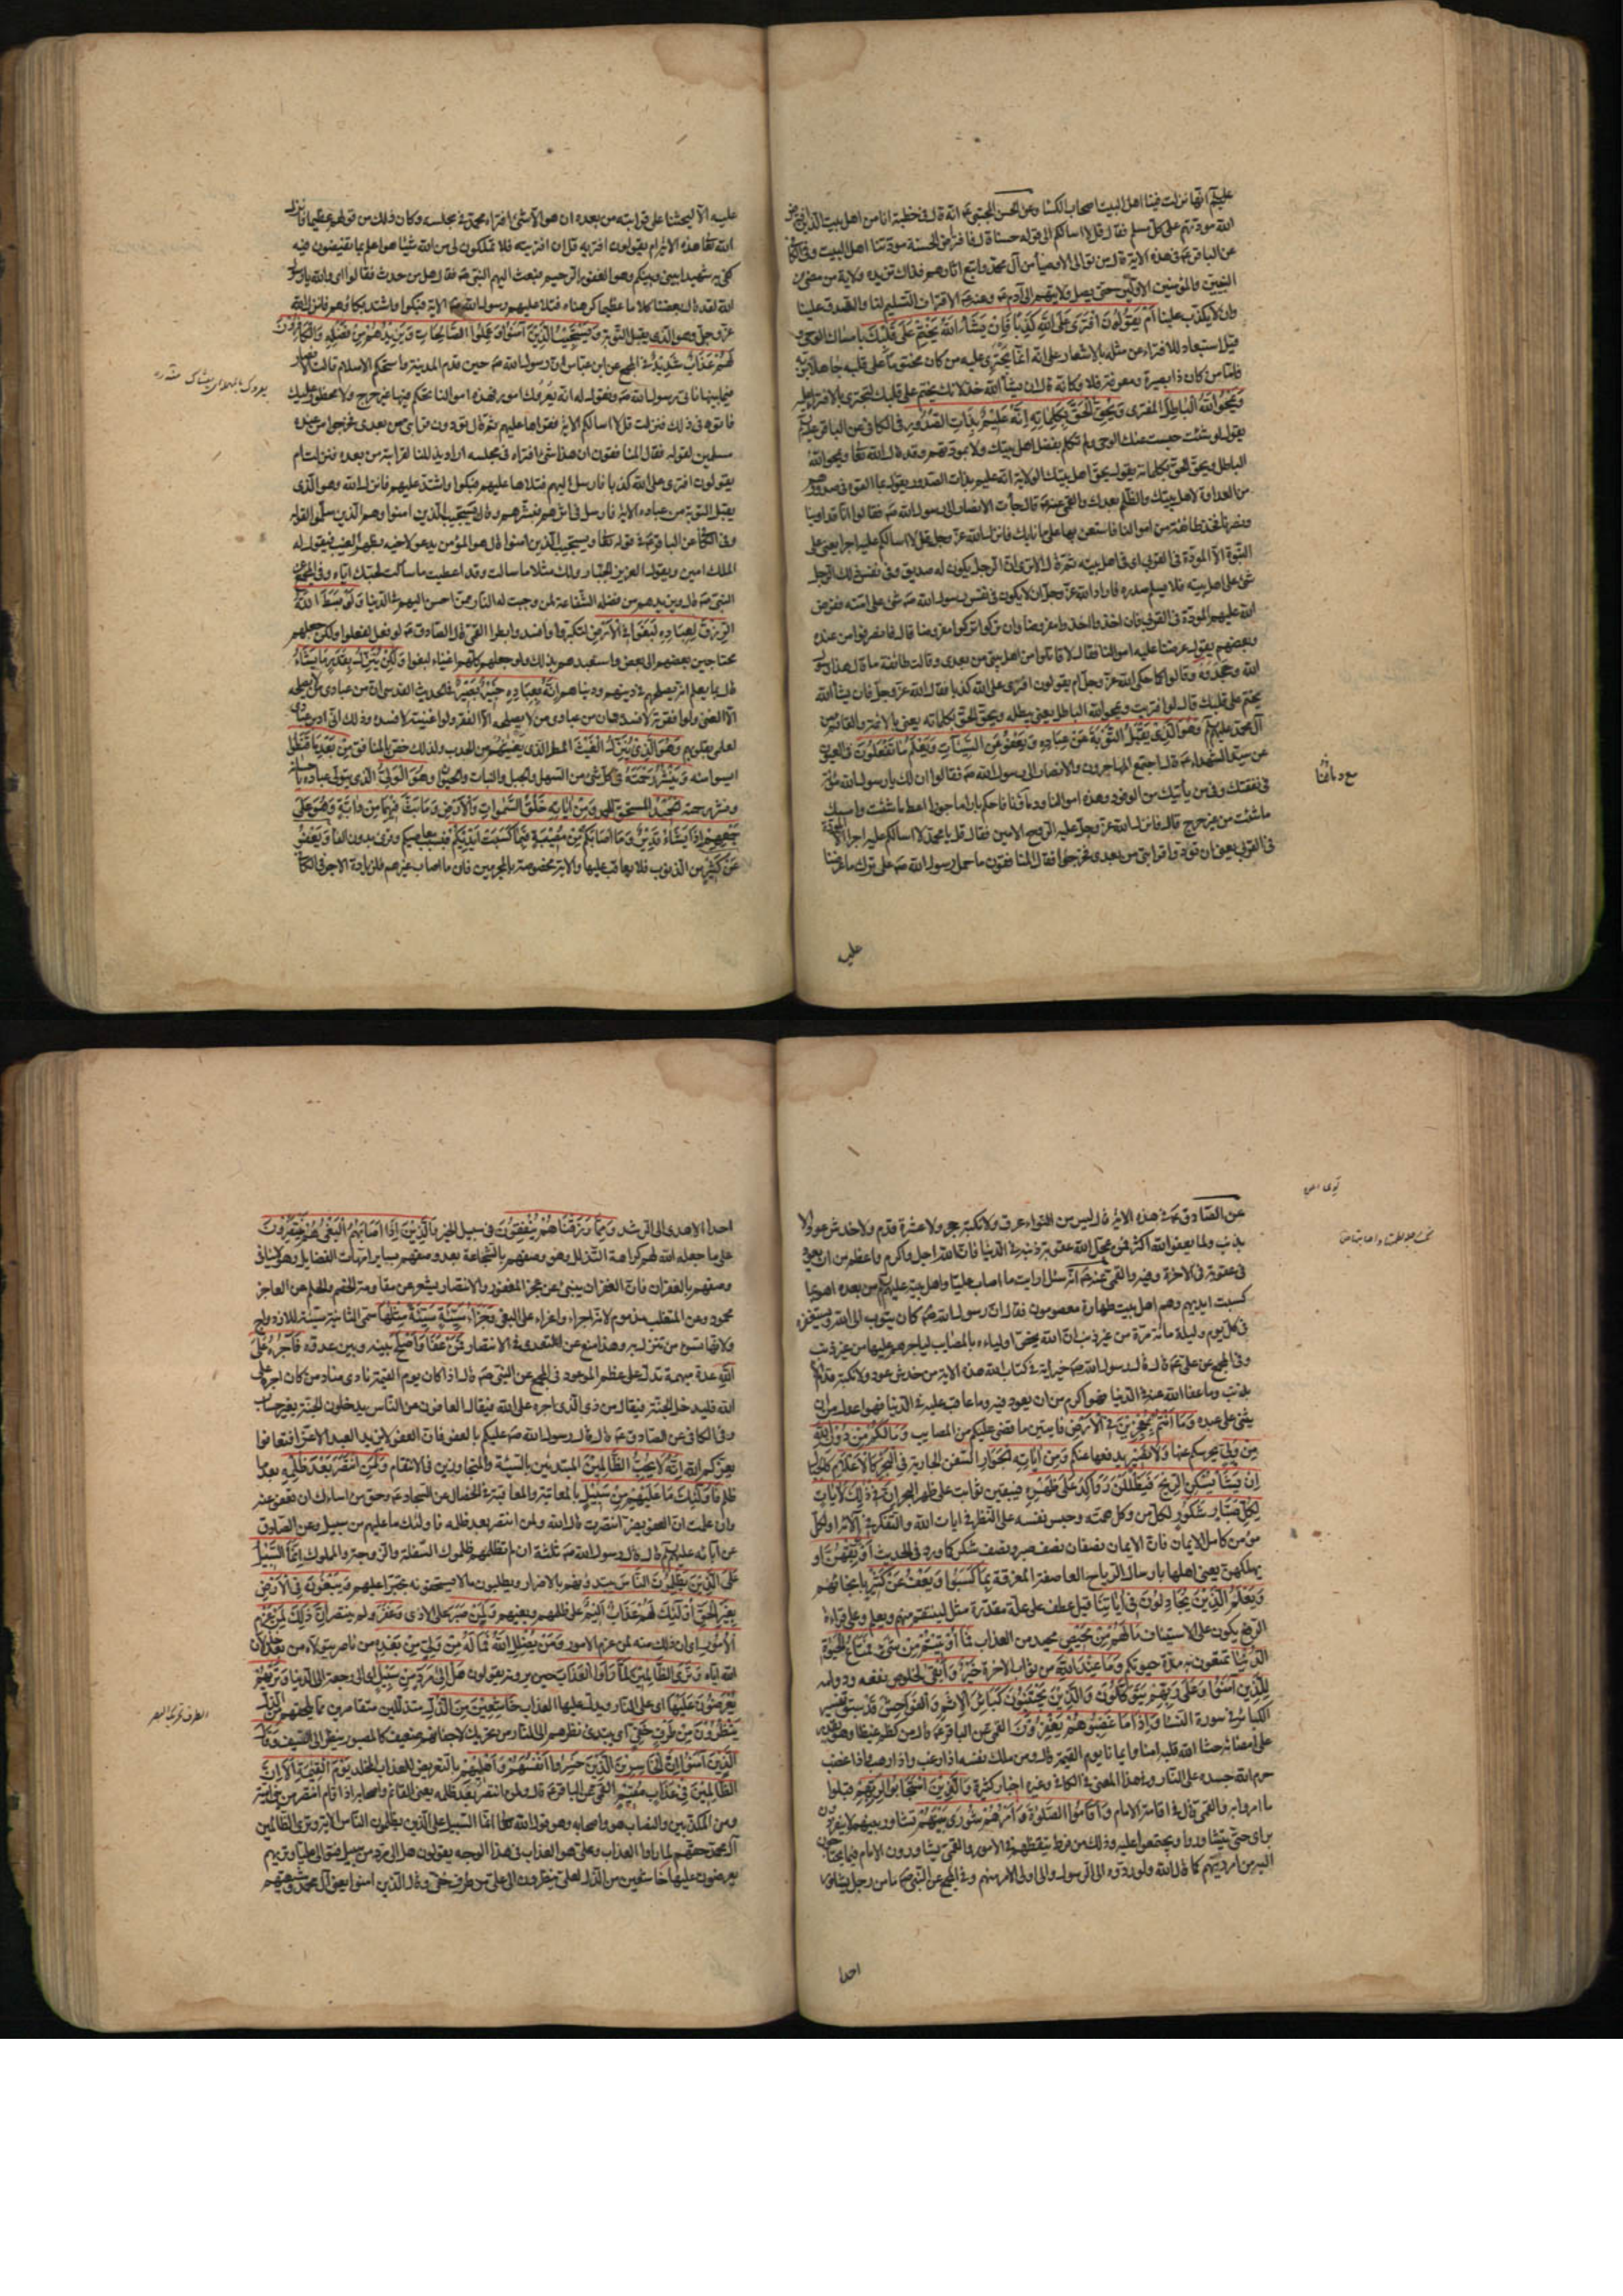 عليهم انها نزلت فينا اهل البيت اصحاب الكسا وعن الحسن المجتبى ع انه قال في خطبة انا من اهل بيت الذين افترض
الله مودتهم على كل مسلم فقال قل لا اسالكم الى قوله حسنا قال فاقتراف الحسنة مودتنا اهل البيت وفي الكافي
عن الباقر ع في هذه الاية قال من توالى الاوصياء من آل محمد واتبع اثارهم فذاك تزيده ولاية من مضى من
النبيين والمؤمنين الاولين حتى يصل ولايتهم الى آدم ع وعنه ع الاقتراف التسليم لنا والصدق علينا
وان لا يكذب علينا أَمْ يَقُولُونَ افْتَرَى عَلَى اللَّهِ كَذِبًا فَإِنْ يَشَأِ اللَّهُ يَخْتِمْ عَلَى قَلْبِكَ بامساك الوحي و
قيل استبعاد للافتراء عن مثله بالاشعار على انه انما يجترئ عليه من كان مختوما على قلبه جاهلا بربه
فاما من كان ذا بصيرة ومعرفة فلا وكانه قال ان يشأ الله خذلانك يختم على قلبك لتجترئ بالافتراء عليه
وَيَمْحُ اللَّهُ الْبَاطِلَ المفترى وَيُحِقُّ الْحَقَّ بِكَلِمَاتِهِ إِنَّهُ عَلِيمٌ بِذَاتِ الصُّدُورِ في الكافي عن الباقر ع
يقول لو شئت حبست عنك الوحي فلم تكلم بفضل اهل بيتك ولا بمودتهم وقد قال الله تعا ويمحو الله
الباطل ويحق الحق بكلماته يقول يحق لاهل بيتك الولاية انه عليم بذات الصدور يقول بما القوه في صدورهم
من العداوة لاهل بيتك والظلم بعدك والقمي عنه ع قال جاءت الانصار الى رسول الله ص فقالوا انا قد اوينا
ونصرنا فخذ طائفة من اموالنا فاستعن بها على ما نابك فانزل الله عز وجل قل لا اسالكم عليه اجرا يعني على
النبوة الا المودة في القربى اي في اهل بيته ثم قال الا ترى ان الرجل يكون له صديق وفي نفس ذلك الرجل
شئ على اهل بيته فلا يسلم صدره فاراد الله عز وجل ان لا يكون في نفس رسول الله ص شئ على امته ففرض
الله عليهم المودة في القربى فان اخذوا اخذوا مفروضا وان تركوا تركوا مفروضا قال فانصرفوا من عنده
وبعضهم يقول عرضنا عليه اموالنا فقال لا قاتلوا من اهل بيتي من بعدي وقالت طائفة ما قال هذا رسول
الله وجحدوه وقالوا كما حكى الله عز وجل ام يقولون افترى على الله كذبا فقال الله عز وجل فان يشأ الله
يختم على قلبك قال لو افتريت ويمحو الله الباطل يعني يبطله ويحق الحق بكلماته يعني بالائمة والقائم من
آل محمد عليهم وَهُوَ الَّذِي يَقْبَلُ التَّوْبَةَ عَنْ عِبَادِهِ وَيَعْفُو عَنِ السَّيِّئَاتِ وَيَعْلَمُ مَا تَفْعَلُونَ في العيون
عن سيد الشهداء ع قال اجتمع المهاجرون والانصار الى رسول الله ص فقالوا ان لك يا رسول الله مؤنة
في نفقتك وفي من يأتيك من الوفود وهذه اموالنا ودماؤنا فاحكم بارا ماجورا اعط ما شئت وامسك
ما شئت من غير حرج قال فانزل الله عز وجل عليه الروح الامين فقال قل يا محمد لا اسالكم عليه اجرا الا المودة
في القربى يعني ان تودوا قرابتي من بعدي فخرجوا فقال المنافقون ما حمل رسول الله ص على ترك ما عرضنا
عليه
عليه الا ليحثنا على قرابته من بعده ان هو الا شئ افتراه محمد في مجلسه وكان ذلك من قولهم عظيما فانزل
الله تعا هذه الاية ام يقولون افتريه قل ان افتريته فلا تملكون لي من الله شيئا هو اعلم بما تفيضون فيه
كفى به شهيدا بيني وبينكم وهو الغفور الرحيم فبعث اليهم النبي ص فقال هل من حدث فقالوا اي والله يا رسول
الله لقد قال بعضنا كلاما عظيما كرهناه فتلا عليهم رسول الله ص الاية فبكوا واشتد بكاؤهم فانزل الله
عز وجل وهو الذي يقبل التوبة وَيَسْتَجِيبُ الَّذِينَ آمَنُوا وَعَمِلُوا الصَّالِحَاتِ وَيَزِيدُهُمْ مِنْ فَضْلِهِ وَالْكَافِرُونَ
لَهُمْ عَذَابٌ شَدِيدٌ في المجمع عن ابن عباس ان رسول الله ص حين قدم المدينة واستحكم الاسلام قالت الانصار
فيما بينها ناتي رسول الله ص ونقول له انه يعروك امور فهذه اموالنا تحكم فيها غير حرج ولا محظور عليك
فاتوه في ذلك فنزلت قل لا اسالكم الاية فقراها عليهم ثم قال تودون قرابتي من بعدي فخرجوا من عنده
مسلمين لقوله فقال المنافقون ان هذا شئ افتراه في مجلسه اراد يذللنا لقرابته من بعده فنزلت ام
يقولون افترى على الله كذبا فارسل اليهم فتلاها عليهم فبكوا واشتد عليهم فانزل الله وهو الذي
يقبل التوبة عن عباده الاية فارسل في اثرهم فبشرهم وقال ويستجيب الذين امنوا وهم الذين سلموا لقوله
وفي الكافي عن الباقر ع في قوله تعا ويستجيب الذين امنوا قال هو المؤمن يدعو لاخيه بظهر الغيب فيقول له
الملك امين ويقول العزيز الجبار ولك مثلا ما سالت وقد اعطيت ما سألت لحبك اياه وفي المجمع عن
النبي ص قال ويزيدهم من فضله الشفاعة لمن وجبت له النار ممن احسن اليهم في الدنيا وَلَوْ بَسَطَ اللَّهُ
الرِّزْقَ لِعِبَادِهِ لَبَغَوْا فِي الْأَرْضِ لتكبروا وافسدوا بطرا القمي قال الصادق ع لو فعل لفعلوا ولكن جعلهم
محتاجين بعضهم الى بعض واستعبدهم بذلك ولو جعلهم كلهم اغنياء لبغوا وَلَكِنْ يُنَزِّلُ بِقَدَرٍ مَا يَشَاءُ
قال بما يعلم انه يصلحهم في دينهم ودنياهم إِنَّهُ بِعِبَادِهِ خَبِيرٌ بَصِيرٌ في الحديث القدسي ان من عبادي من لا يصلحه
الا الغنى ولو افقرته لافسده وان من عبادي من لا يصلحه الا الفقر ولو اغنيته لافسده وذلك اني ادبر عبادي
لعلمي بقلوبهم وَهُوَ الَّذِي يُنَزِّلُ الْغَيْثَ المطر الذي يغيثهم من الجدب ولذلك خص بالنافع مِنْ بَعْدِ مَا قَنَطُوا
ايسوا منه وَيَنْشُرُ رَحْمَتَهُ في كل شئ من السهل والجبل والنبات والحيوان وَهُوَ الْوَلِيُّ الذي يتولى عباده باحسانه
ونشر رحمته الْحَمِيدُ المستحق للحمد وَمِنْ آيَاتِهِ خَلْقُ السَّمَوَاتِ وَالْأَرْضِ وَمَا بَثَّ فِيهِمَا مِنْ دَابَّةٍ وَهُوَ عَلَى
جَمْعِهِمْ إِذَا يَشَاءُ قَدِيرٌ وَمَا أَصَابَكُمْ مِنْ مُصِيبَةٍ فَبِمَا كَسَبَتْ أَيْدِيكُمْ فبسبب معاصيكم وقرئ بدون الفاء وَيَعْفُو
عَنْ كَثِيرٍ من الذنوب فلا يعاقب عليها والاية مخصوصة بالمجرمين فان ما اصاب غيرهم فلزيادة الاجر في الكافي
عن الصادق ع في هذه الاية قال ليس من التواء عرق ولا نكبة حجر ولا عثرة قدم ولا خدش عود الا
بذنب ولما يعفو الله اكثر فمن عجل الله عقوبة ذنبه في الدنيا فان الله اجل واكرم واعظم من ان يعود
في عقوبته في الاخرة وفيه والقمي عنه ع انه سئل ارايت ما اصاب عليا واهل بيته عليهم من بعده اهو بما
كسبت ايديهم وهم اهل بيت طهارة معصومون فقال ان رسول الله ص كان يتوب الى الله ويستغفره
في كل يوم وليلة مائة مرة من غير ذنب ان الله يخص اولياءه بالمصايب لياجرهم عليها من غير ذنب
وفي المجمع عن علي ع قال قال رسول الله ص خير اية في كتاب الله هذه الاية من خدش عود ولا نكبة قدم الا
بذنب وما عفا الله عنه في الدنيا فهو اكرم من ان يعود فيه وما عاقب عليه في الدنيا فهو اعدل من ان
يثني على عبده وَمَا أَنْتُمْ بِمُعْجِزِينَ فِي الْأَرْضِ فايتين ما قضى عليكم من المصايب وَمَا لَكُمْ مِنْ دُونِ اللَّهِ
مِنْ وَلِيٍّ يحرسكم عنها وَلَا نَصِيرٍ يدفعها عنكم وَمِنْ آيَاتِهِ الْجَوَارِ السفن الجارية فِي الْبَحْرِ كَالْأَعْلَامِ كالجبال
إِنْ يَشَأْ يُسْكِنِ الرِّيحَ فَيَظْلَلْنَ رَوَاكِدَ عَلَى ظَهْرِهِ فيبقين ثوابت على ظهر البحر إِنَّ فِي ذَلِكَ لَآيَاتٍ
لِكُلِّ صَبَّارٍ شَكُورٍ لكل من وكل همته وحبس نفسه على النظر في ايات الله والتفكر في آلائه او لكل
مؤمن كامل الايمان فان الايمان نصفان نصف صبر ونصف شكر كما ورد في الحديث أَوْ يُوبِقْهُنَّ او
يهلكهن يعني اهلها بارسال الرياح العاصفة المغرقة بِمَا كَسَبُوا وَيَعْفُ عَنْ كَثِيرٍ بانجائهم
وَيَعْلَمَ الَّذِينَ يُجَادِلُونَ فِي آيَاتِنَا قيل عطف على علة مقدرة مثل لينتقم منهم ويعلم وعلى قراءة
الرفع يكون على الاستيناف مَا لَهُمْ مِنْ مَحِيصٍ محيد من العذاب فَمَا أُوتِيتُمْ مِنْ شَيْءٍ فَمَتَاعُ الْحَيَوةِ
الدُّنْيَا تمتعون به مدة حيوتكم وَمَا عِنْدَ اللَّهِ من ثواب الاخرة خَيْرٌ وَأَبْقَى لخلوص نفعه ودوامه
لِلَّذِينَ آمَنُوا وَعَلَى رَبِّهِمْ يَتَوَكَّلُونَ وَالَّذِينَ يَجْتَنِبُونَ كَبَائِرَ الْإِثْمِ وَالْفَوَاحِشَ قد سبق تفسير
الكبائر في سورة النساء وَإِذَا مَا غَضِبُوا هُمْ يَغْفِرُونَ القمي عن الباقر ع قال من كظم غيظا وهو يقدر
على امضائه حشا الله قلبه امنا وايمانا يوم القيمة قال ومن ملك نفسه اذا رغب واذا رهب واذا غضب
حرم الله جسده على النار وبهذا المعنى في الكافي وغيره اخبار كثيرة وَالَّذِينَ اسْتَجَابُوا لِرَبِّهِمْ قبلوا
ما امروا به والقمي قال في اقامة الامام وَأَقَامُوا الصَّلَوةَ وَأَمْرُهُمْ شُورَى بَيْنَهُمْ تشاور بينهم لا ينفردون
براي حتى يتشاوروا ويجتمعوا عليه وذلك من فرط تيقظهم في الامور والقمي يشاورون الامام فيما يحتاجون
اليه من امر دينهم كما قال الله ولو ردوه الى الرسول والى اولى الامر منهم وفي المجمع عن النبي ص ما من رجل يشاور
احدا
احدا الا هدى الى الرشد وَمِمَّا رَزَقْنَاهُمْ يُنْفِقُونَ في سبيل الخير وَالَّذِينَ إِذَا أَصَابَهُمُ الْبَغْيُ هُمْ يَنْتَصِرُونَ
على ما جعله الله لهم كراهة التذلل وهو وصفهم بالشجاعة بعد وصفهم بساير امهات الفضايل وهو لا ينافي
وصفهم بالغفران فان الغفران ينبئ عن عجز المغفور والانتصار يشعر عن مقاومة الخصم والحلم عن العاجز
محمود وعن المتغلب مذموم لانه اجراء واغراء على البغي وَجَزَاءُ سَيِّئَةٍ سَيِّئَةٌ مِثْلُهَا سمى الثانية سيئة للازدواج
ولانها تسوء من تنزل به وهذا منع عن التعدي في الانتصار فَمَنْ عَفَا وَأَصْلَحَ بينه وبين عدوه فَأَجْرُهُ عَلَى
اللَّهِ عدة مبهمة تدل على عظم الموعود في المجمع عن النبي ص قال اذا كان يوم القيمة نادى مناد من كان اجره على
الله فليدخل الجنة فيقال من ذا الذي اجره على الله فيقال العافون عن الناس يدخلون الجنة بغير حساب
وفي الكافي عن الصادق ع قال قال رسول الله ص عليكم بالعفو فان العفو لا يزيد العبد الا عزا فتعافوا
يعزكم الله إِنَّهُ لَا يُحِبُّ الظَّالِمِينَ المبتدئين بالسيئة والمتجاوزين في الانتقام وَلَمَنِ انْتَصَرَ بَعْدَ ظُلْمِهِ بعد ما
ظلم فَأُولَئِكَ مَا عَلَيْهِمْ مِنْ سَبِيلٍ بالمعاتبة والمعاقبة في الخصال عن السجاد ع وحق من اساءك ان تعفو عنه
وان علمت ان العفو يضر انتصرت قال الله ولمن انتصر بعد ظلمه فاولئك ما عليهم من سبيل وعن الصادق
عن آبائه عليهم قال قال رسول الله ص ثلثة ان لم تظلمهم ظلموك السفلة والزوجة والمملوك إِنَّمَا السَّبِيلُ
عَلَى الَّذِينَ يَظْلِمُونَ النَّاسَ يبتدؤنهم بالاضرار ويطلبون ما لا يستحقونه تجبرا عليهم وَيَبْغُونَ فِي الْأَرْضِ
بِغَيْرِ الْحَقِّ أُولَئِكَ لَهُمْ عَذَابٌ أَلِيمٌ على ظلمهم وبغيهم وَلَمَنْ صَبَرَ على الاذى وَغَفَرَ ولم ينتصر إِنَّ ذَلِكَ لَمِنْ عَزْمِ
الْأُمُورِ اي ان ذلك منه لمن عزم الامور وَمَنْ يُضْلِلِ اللَّهُ فَمَا لَهُ مِنْ وَلِيٍّ مِنْ بَعْدِهِ من ناصر يتولاه من بعد خذلان
الله اياه وَتَرَى الظَّالِمِينَ لَمَّا رَأَوُا الْعَذَابَ حين يرونه يَقُولُونَ هَلْ إِلَى مَرَدٍّ مِنْ سَبِيلٍ اي الى رجعة الى الدنيا وَتَرَيهُمْ
يُعْرَضُونَ عَلَيْهَا اي على النار ويدل عليها العذاب خَاشِعِينَ مِنَ الذُّلِّ متذللين متقاصرين مما يلحقهم من الذل
يَنْظُرُونَ مِنْ طَرْفٍ خَفِيٍّ اي يبتدئ نظرهم الى النار من تحريك لاجفانهم ضعيف كالمصبور ينظر الى السيف وَقَالَ
الَّذِينَ آمَنُوا إِنَّ الْخَاسِرِينَ الَّذِينَ خَسِرُوا أَنْفُسَهُمْ وَأَهْلِيهِمْ بالتعريض للعذاب المخلد يَوْمَ الْقِيَمَةِ أَلَا إِنَّ
الظَّالِمِينَ فِي عَذَابٍ مُقِيمٍ القمي عن الباقر ع قال ولمن انتصر بعد ظلمه يعني القائم واصحابه اذا قام انتصر من بني امية
ومن المكذبين والنصاب هو واصحابه وهو قول الله تعا انما السبيل على الذين يظلمون الناس الاية وترى الظالمين
آل محمد حقهم لما راوا العذاب وعلي هو العذاب في هذا الوجه يقولون هل الى مرد من سبيل فنوالي عليا وتريهم
يعرضون عليها خاشعين من الذل لعلي ينظرون الى علي من طرف خفي وقال الذين امنوا يعني آل محمد وشيعتهم